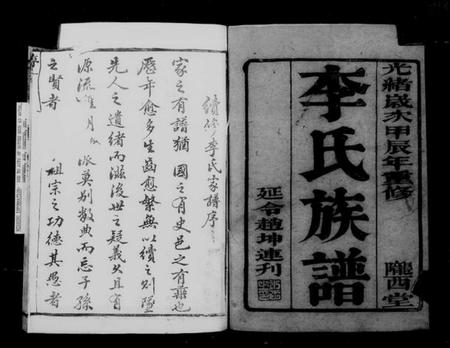 光緒歲次甲辰年重修
李氏族譜
隴西堂
延令趙坤連刊
續修李氏家譜序
家之有譜猶國之有史邑之有乘也
歷年愈多生齒愈繁無以續之則墜
先人之遺緒而滋後世之疑義久且有
源流 月 派莫別數典而忘子孫
之賢者
祖宗之功德其愚者